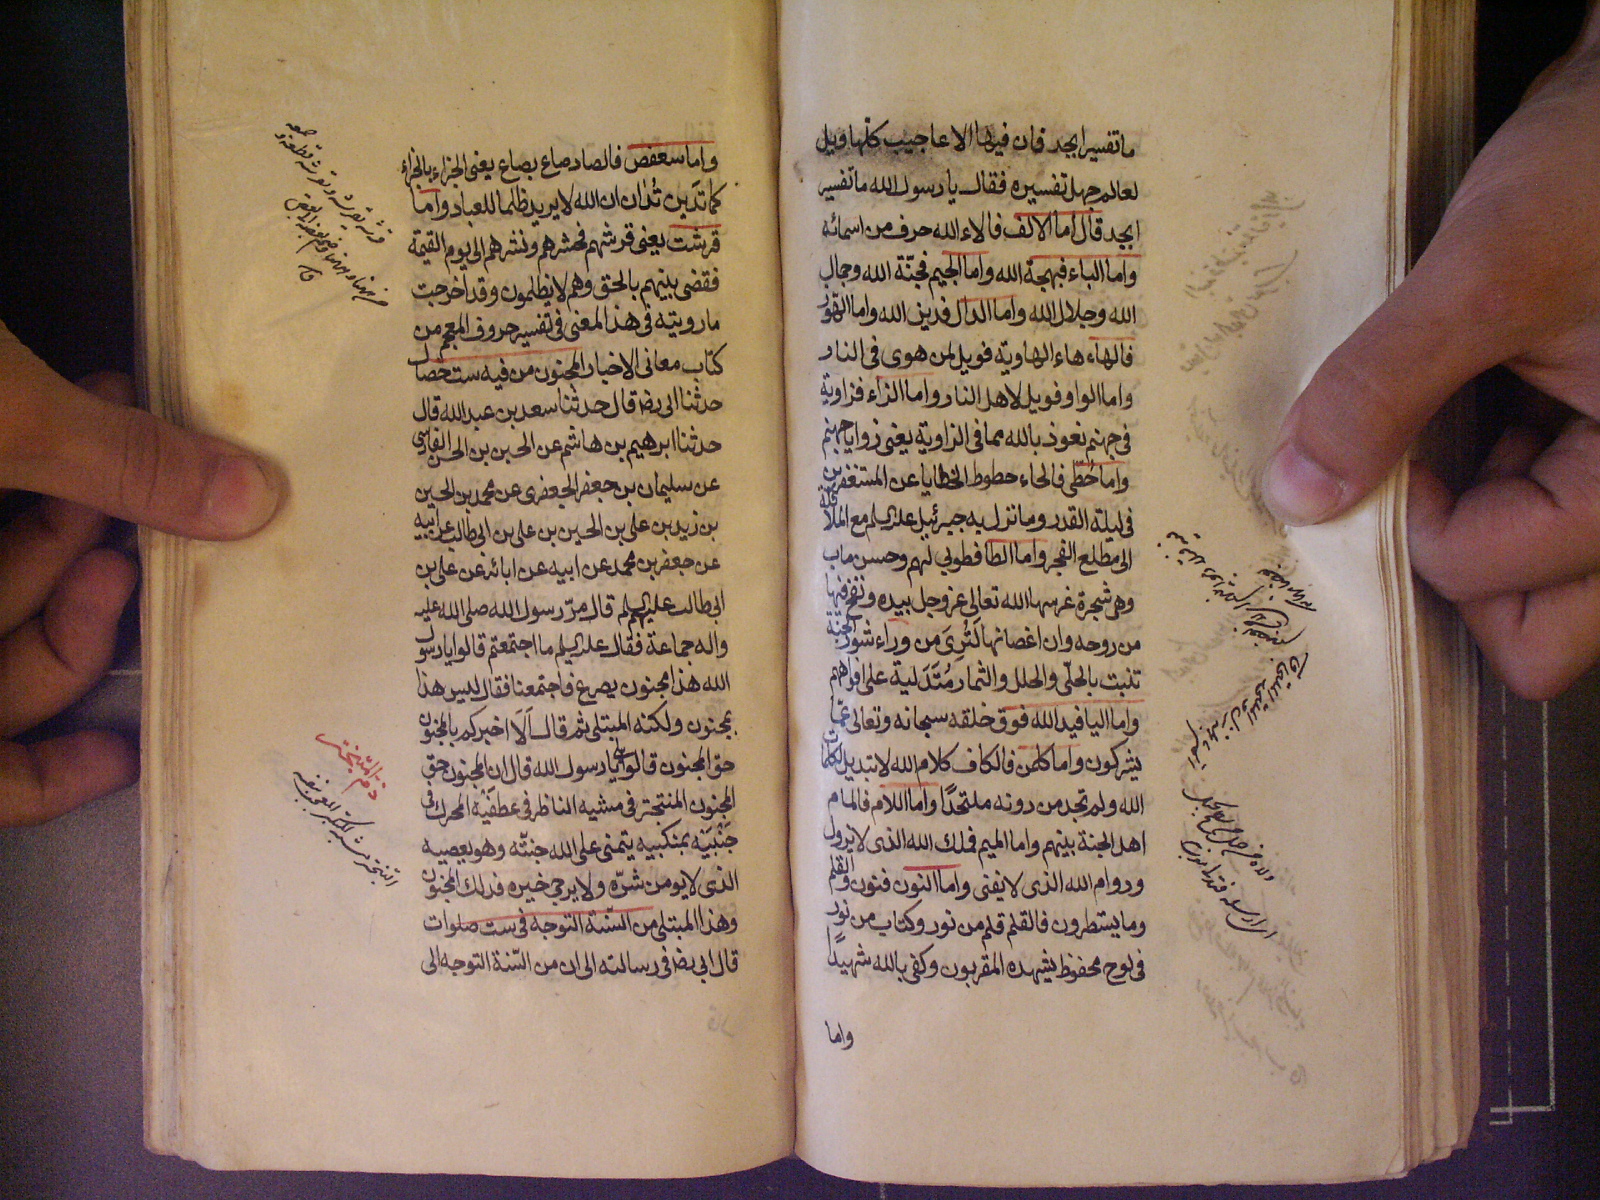 ما تفسير ابجد فان فيها الاعاجيب كلها ويل
لعالم جهل تفسيره فقال يا رسول الله ما تفسير
ابجد قال اما الالف فالاء الله حرف من اسمائه
واما الباء فبهجة الله واما الجيم فجنّة الله وجمال
الله وجلال الله واما الدال فدين الله واما الهوز
فالهاء هاء الهاوية فويل لمن هوى فى النار
واما الواو فويل لاهل النار واما الزاء فزاوية
فى جهنم نعوذ بالله مما فى الزاوية يعنى زوايا جهنم
واما حُطّى فالحاء حطوط الخطايا عن المستغفرين
فى ليلة القدر وما نزل به جبرئيل عليه السلم مع الملائكة
الى مطلع الفجر واما الطا فطوبى لهم وحسن ماب
وهى شجرة غرسها الله تعالى عز وجل بيده ونفخ فيها
من روحه وان اغصانها لَتُرىَ من وراء سور الجنة
تنبت بالحلّى والحلل والثمار مُتَدَلية على افواههم
واما اليا فيد الله فوق خلقه سبحانه وتعالى عمّا
يشركون واما كلمن فالكاف كلام الله لا تبديل لكلمات
الله ولم تجد من دونه ملتحدًا واما اللام فالمام
اهل الجنة بينهم واما الميم فملك الله الذى لا يزول
ودوام الله الذى لا يفنى واما النون فنون والقلم
وما يسطرون فالقلم قلم من نور وكتاب من نور
فى لوح محفوظ يشهده المقربون وكفى بالله شهيدًا
واما
واما سعفص فالصاد صاع بصاع يعنى الجزاء بالجزاء
كما تَدين تُدان ان الله لا يريد ظلما للعباد واما
قرشت يعنى قرشهم فحشرهم ونشرهم الى يوم القيمة
فقضى بينهم بالحق وهم لا يظلمون وقد اخرجت
ما رويته فى هذا المعنى فى تفسير حروف المعجم من
كتاب معانى الاخبار المجنون من فيه ست خصال
حدثنا ابى رضه قال حدثنا سعد بن عبد الله قال
حدثنا ابرهيم بن هاشم عن الحسن بن الحسن الفارسى
عن سليمان بن جعفر الجعفرى عن محمد بن الحسين
بن زيد بن على بن الحسين بن على بن ابى طالب عن ابيه
عن جعفر بن محمد عن ابيه عن ابائه عن على بن
ابى طالب عليهم السلم قال مرّ رسول الله صلى الله عليه
واله جماعة فقال عليه السلم ما اجتمعتم قالوا يا رسول
الله هذا مجنون يصرع فاجتمعنا فقال ليس هذا
بمجنون ولكنه المبتلى ثم قال اَلَا اخبركم بالمجنون
حق المجنون قالوا بلى يا رسول الله قال ان المجنون حق
المجنون المتبختر فى مشيه الناظر فى عطفَيْه المحرك
جَنْبَيْه بمنكبيه يتمنى على الله جنّته وهو يعصيه
الذى لا يومن شرّه ولا يرجى خيره فذلك المجنون
وهذا المبتلى من السّنة التوجه فى ست صلوات
قال ابى رضه فى رسالته الى ان من السّنة التوجه الى
ذم المتبختر